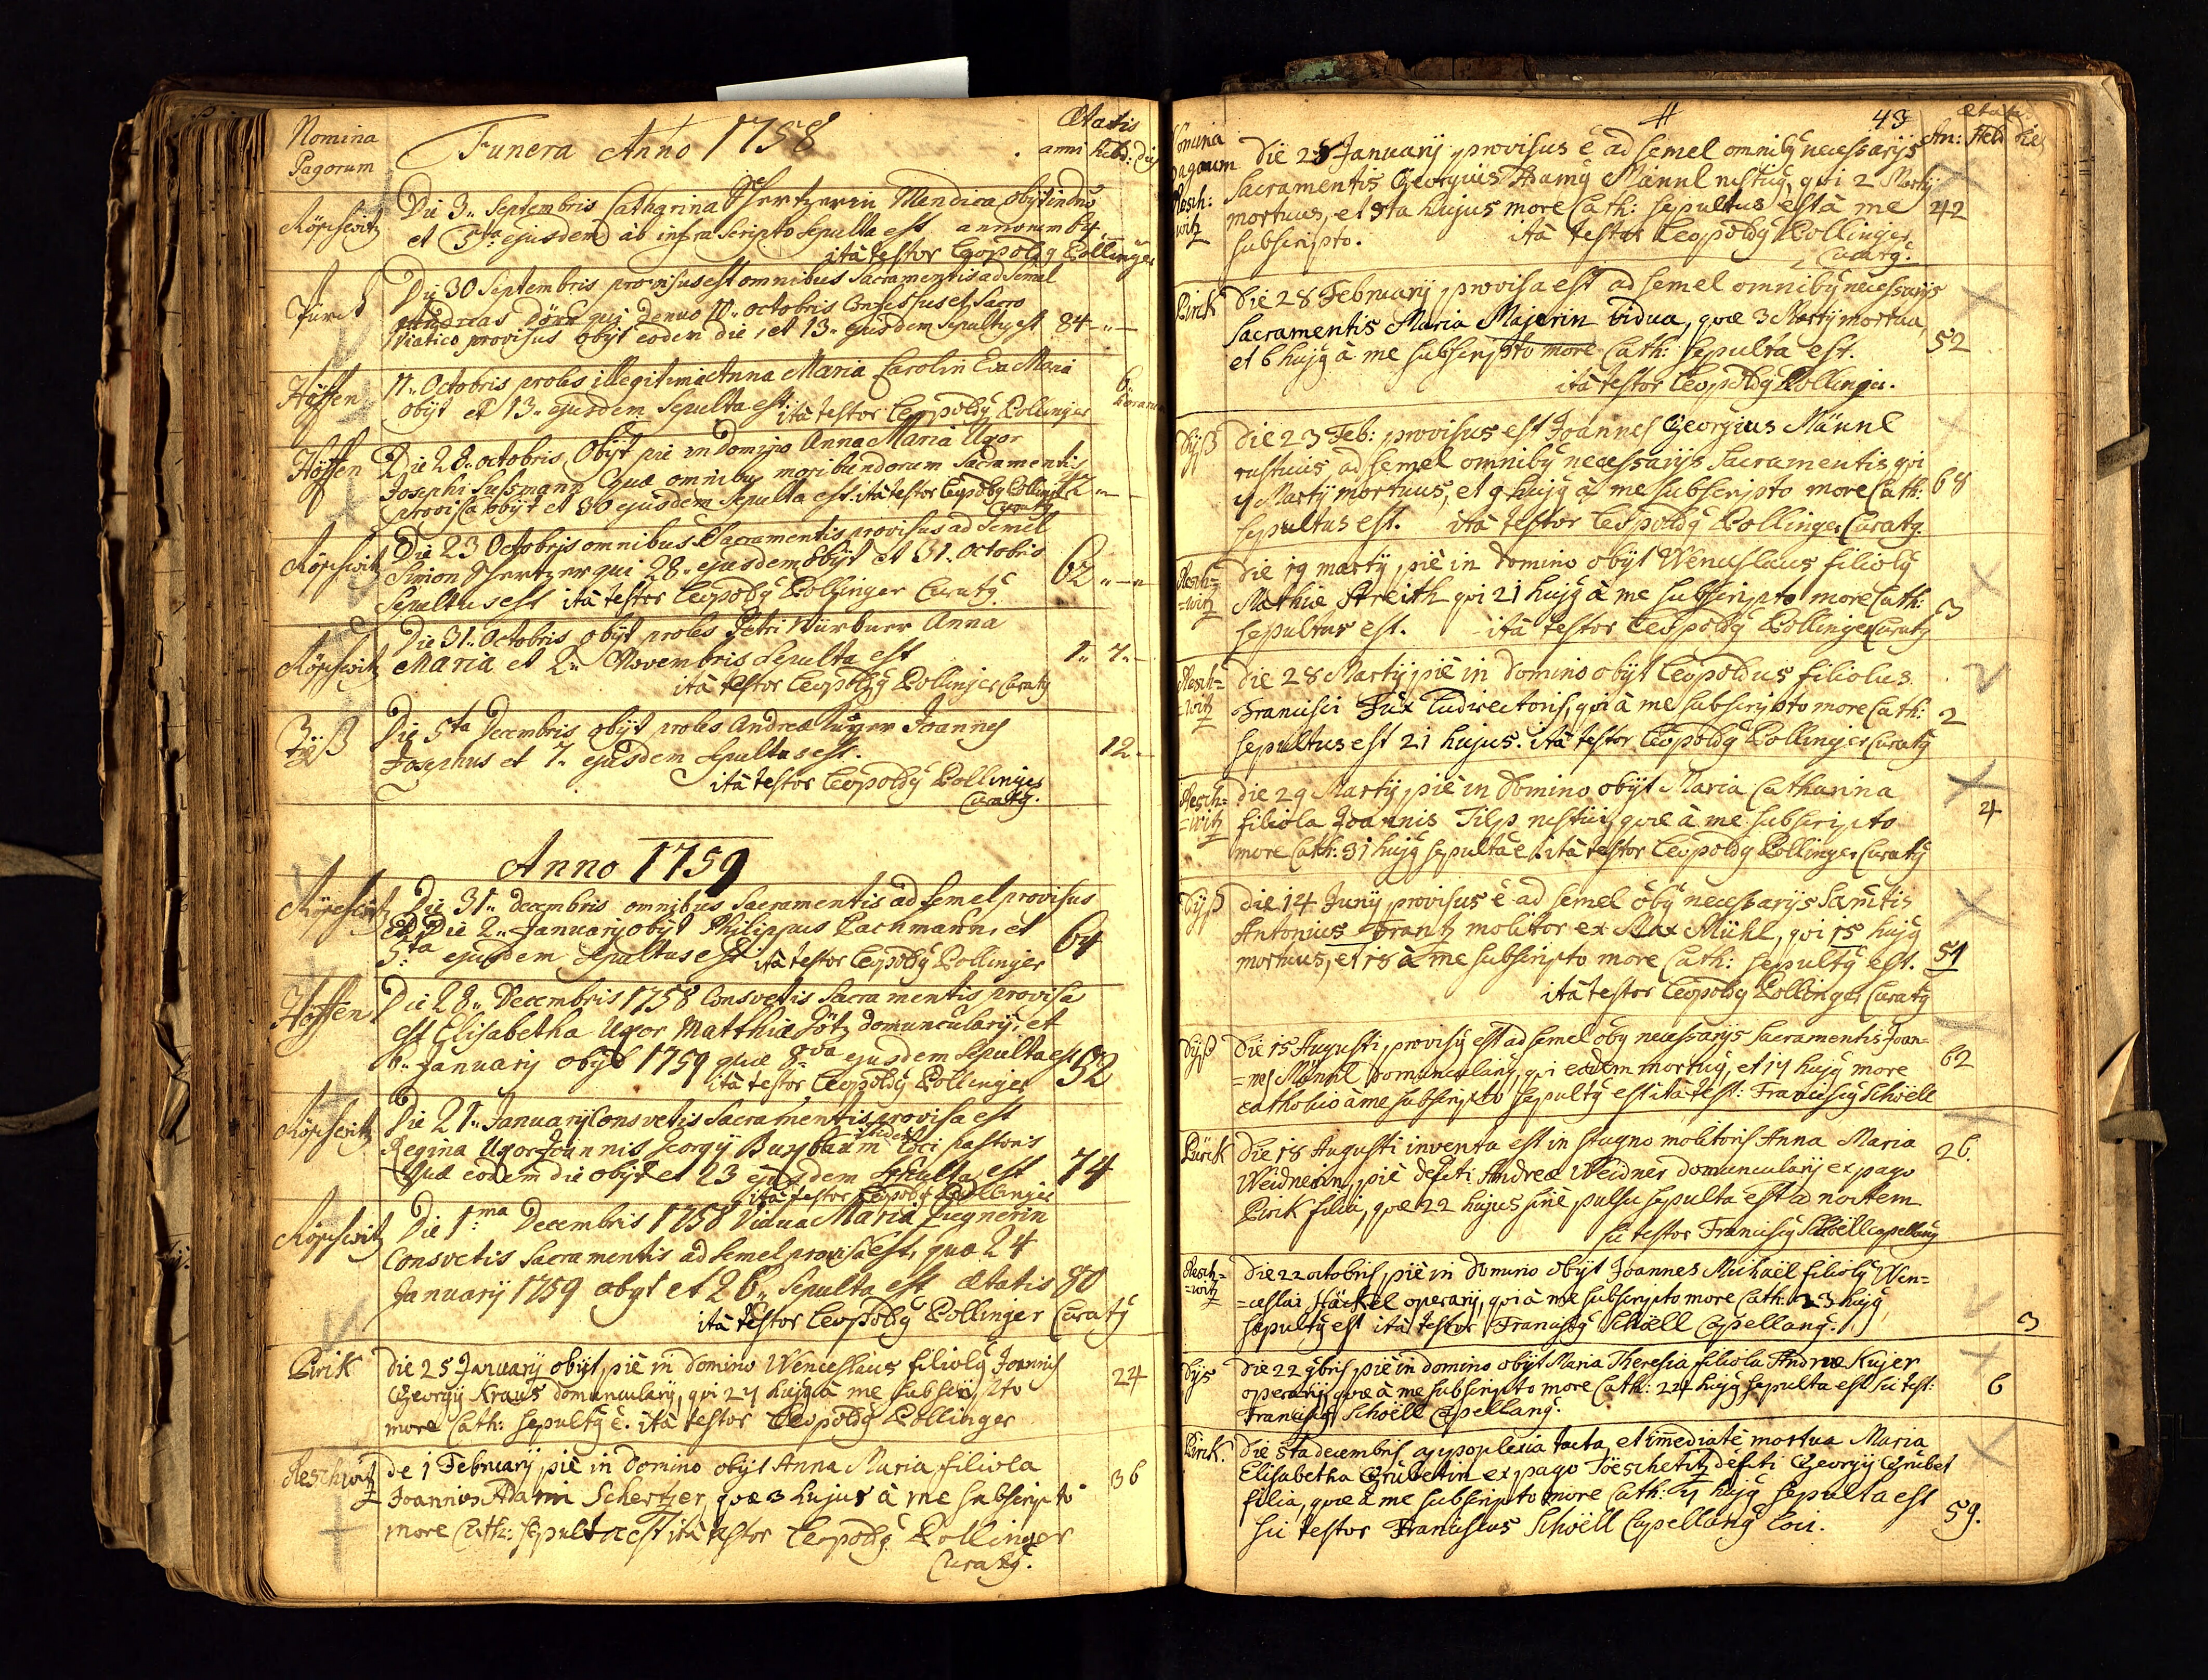 Nomina
Pagorum
Funera Anno 1758
Ætatis
anni hebd: dies
Röschwitz
Die 3.. Septembris Catharina Schertzerin Mendica obijt in dno
et 5ta ejusdem ab infra scripto sepulta est annorum 64
ità testor Leopoldg Pollinger
Die 30 Septembris provisus est omnibus Sacramentis ad semel
Andreas qui denuo 11.. octobris Confessus et Sacro
Viatico provisus obijt eodem die, et 13.. ejusdem Sepultg est 84 - " -
Höffen
11.. Octobris proles illegitima Anna Maria Carolin Eva Maria
obijt et 13.. ejusdem Sepulta est ità testor Leopoldg Pollinger
6
Höffen
Die 28.. octobris Obijt pie in Domino Anna Maria Uxor
Josephi Susmann Quæ omnibus moribundorum Sacramentis
provisa obijt et 30 ejusdem Sepulta est ità testor Leopoldg Pollinger
Curatg
Röschwitz
Die 23 Octobris omnibus Sacramentis provisus ad semel
Simon Schertzer qui 28.. ejusdem obijt et 31. Octobris
Sepultus est ità testor Leopoldg Pollinger Curatg.
62 " - "
Röschwitz
Die 31. Octobris obijt proles Petri Würbner Anna
Maria et 2.. Novembris Sepulta est
1.. 7.. -
ità testor Leopoldg Pollinger Curatg
Die 5ta Decembris obijt proles Andreæ Kujer Joannes
Josephus et 7.. ejusdem Sepultus est.
12.. -
ità testor Leopoldg Pollinger
Curatg.
Anno 1759
Röschwitz
Die 31.. Decembris omnibus Sacramentis ad semel provisus
Et Die 2.. January obijt Philippus Pachmann, et
5:ta ejusdem Sepultus est ità testor Leopoldg Pollinger
64
Höffen
Die 28.. Decembris 1758 Consvetis Sacramentis provisa
est Elisabetha Uxor Matthiæ Götz domuncularÿ, et
6.. January obijt 1759 quæ 8:va ejusdem Sepulta est 52
ità testor Leopoldg Pollinger
Röschwitz
Die 21.. January Consvetis Sacramentis provisa est
Regina Uxor Joannis Georgÿ Buxbaum loci pastoris
Quæ eodem die obijt et 23 ejusdem Sepulta est 74
ità testor Leopoldg Pollinger
Röschwitz
Die 1:ma Decembris 1758 Vidua Maria Zuegnerin
Consvetis Sacramentis ad semel provisa est, quæ 24
January 1759 obijt et 26.. Sepulta est ætatis 80
ità testor Leopoldg Pollinger Curatg
Pirik
die 25 January obijt, piè in domino Wenceslaus filiolg Joannis
Georgÿ Kraus domuncularÿ, qvi 27 hujg à me subscripto
more Cath: sepultg ē. ità testor Leopoldg Pollinger
24
Reschwitz
de 1 February, piè in Domino obijt Anna Maria, filiola
Joannis Adami Schertzer, qvæ 3 hujus à me subscripto
more Cath: sepulta est ità testor Leopoldg Pollinger
Curatg.
36
43
Nomina
pagorum
Ætatis
An: Heb Dies
Resch:
witz
Die 28 January provisus ē ad semel omnibg necessarÿs
Sacramentis Georgius Adamg Männl rusticg, qvi 2 Martÿ
mortuus, et 5ta hujus more Cath: sepultus est à me
subscripto. ità testor Leopoldg Pollinger
Curatg.
42
Pirik
Die 28 February, provisa est ad semel omnibg necessarÿs
Sacramentis Maria Majerin vidua, qvæ 3 Martÿ mortua,
et 6 hujg à me subscripto more Cath: sepulta est.
ità testor Leopoldg Pollinger.
52
Dÿß
Die 23 Feb: provisus est Joannes Georgius Männl
rusticus ad semel omnibg necessarÿs Sacramentis qvi
7 Martÿ mortuus, et 9 hujg à me subscripto more Cath:
sepultus est. ità testor Leopoldg Pollinger Curatg.
68
Resch=
=witz
die 19 martÿ, piè in domino obijt Wenceslaus filiolg
Mathiæ Streith qvi 21 hujg à me subscripto more Cath:
sepultus est. ità testor Leopoldg Pollinger Curatg
3
Resch=
witz
die 28 Martÿ, piè in domino obijt Leopoldus filiolus
Francisci Fux Ludirectoris, qvi à me subscripto more Cath:
sepultus est 21 hujus. ità testor Leopoldg Pollinger Curatg
2
Resch=
=witz
die 29 Martÿ, piè in domino obijt Maria Catharina
filiola Joannis Tilp rustici, qvæ à me subscripto
more Cath: 31 hujg sepulta ē. ità testor Leopoldg Pollinger Curatg
4
Dÿß
die 14 Junÿ provisus ē ad semel oībg necessarÿs Sacrātis
Antonius Frantz molitor ex Max Mühl, qvi 15 hujg
mortuus, et 18 à me subscripto more Cath: sepultg est.
ità testor Leopoldg Pollinger Curatg
51
Dÿß
die 15 Augusti, provisg est ad semel oībg necessarÿs Sacramentis Joan=
=nes Männl domuncularig, qvi eodem mortug, et 17 hujg more
catholico à me subscripto sepultg est ità test: Franciscg Schöell
62
Pürk
die 18 Augusti inventa est in stagno molitoris Anna Maria
Weidnerin, piè defcti Andreæ Weidner domuncularÿ ex pago
Pirik filia, qvæ 22 hujus sine pulsu sepulta est ad noctem
sic testor Franciscg Schöell Capellang
26.
Resch=
=witz
die 22 octobris, piè in domino obijt Joannes Michaël filiolg Wen=
=ceslai Häckel operarÿ, qvi à me subscripto more Cath: 23 hujg
sepultg est ità testor Franciscg Schöell Capellang.
3
Dÿs
die 22 9bris, piè in domino obijt Maria Theresia filiola Andreæ Kujer
operarÿ, qvæ à me subscripto more Cath: 24 hujg sepulta est sic test:
Franciscg Schöell Capellang.
6
Pirik.
die 5ta decembris appoplexia tacta, et immediatè mortua Maria
Elisabetha Grübelin ex pago Töeschetitz defcti Georgÿ Grübel
filia, qvæ à me subscripto more Cath: 7 hujg sepulta est
sic testor Franciscus Schöell Capellang loci.
59.